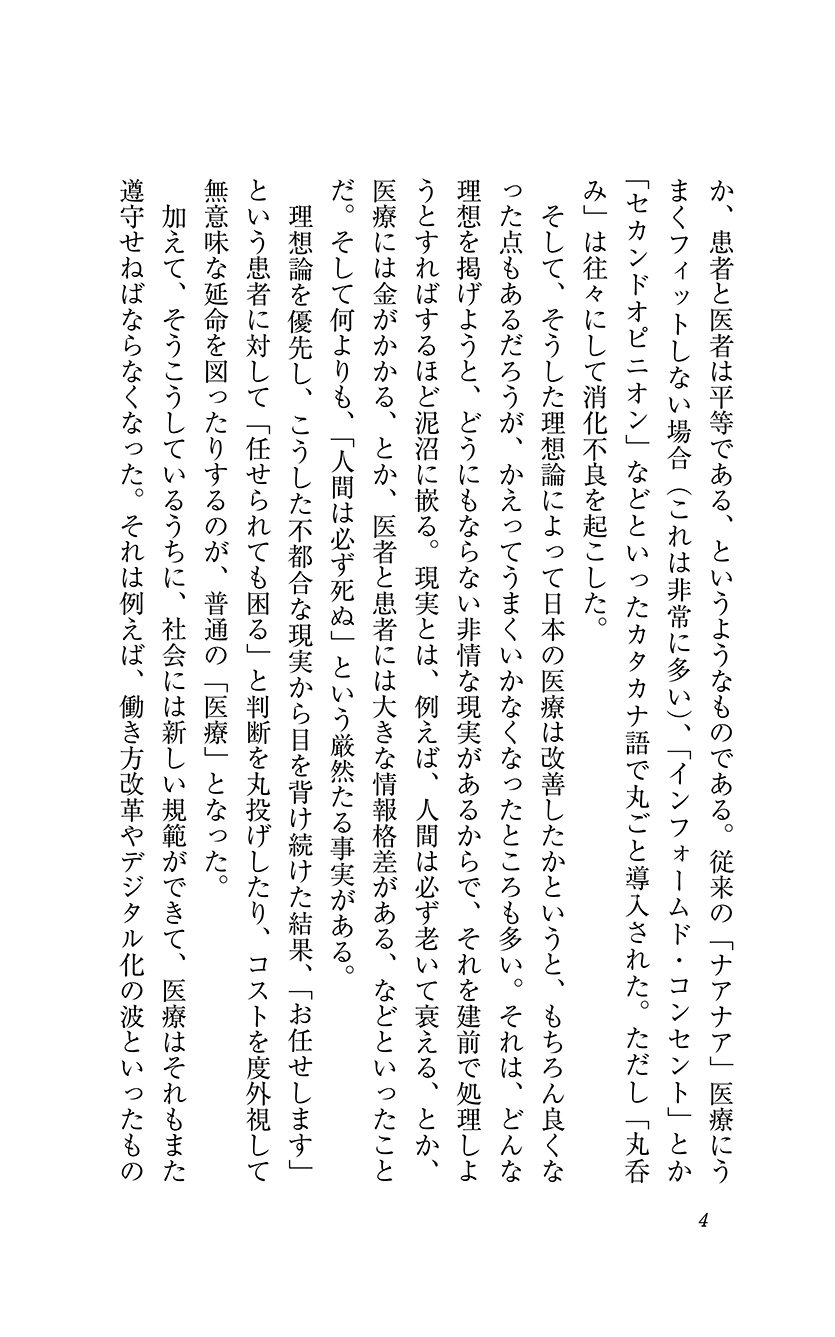 か、患者と医者は平等である、というようなものである。従来の「ナアナア」医療にう
まくフィットしない場合（これは非常に多い）、「インフォームド・コンセント」とか
「セカンドオピニオン」などといったカタカナ語で丸ごと導入された。ただし「丸呑
み」は往々にして消化不良を起こした。
そして、そうした理想論によって日本の医療は改善したかというと、もちろん良くな
った点もあるだろうが、かえってうまくいかなくなったところも多い。それは、どんな
理想を掲げようと、どうにもならない非情な現実があるからで、それを建前で処理しよ
うとすればするほど泥沼に嵌る。現実とは、例えば、人間は必ず老いて衰える、とか、
医療には金がかかる、とか、医者と患者には大きな情報格差がある、などといったこと
だ。そして何よりも、「人間は必ず死ぬ」という厳然たる事実がある。
理想論を優先し、こうした不都合な現実から目を背け続けた結果、「お任せします」
という患者に対して「任せられても困る」と判断を丸投げしたり、コストを度外視して
無意味な延命を図ったりするのが、普通の「医療」となった。
加えて、そうこうしているうちに、社会には新しい規範ができて、医療はそれもまた
遵守せねばならなくなった。それは例えば、働き方改革やデジタル化の波といったもの
4